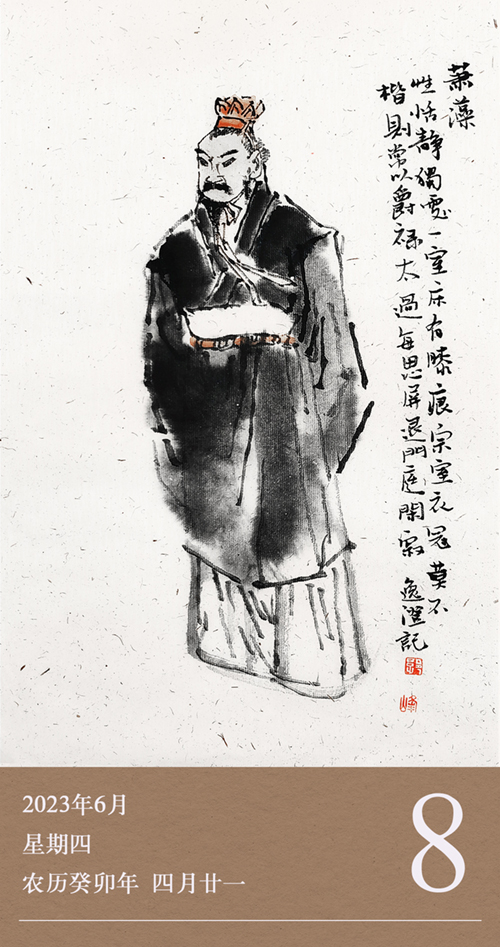 萧藻
性恬静獨處一室床有膝痕宗室衣冠莫不
楷則常以爵禄太過每思屏退門庭閑寂 逸澄記
2023年6月
星期四
农历癸卯年 四月廿一
8